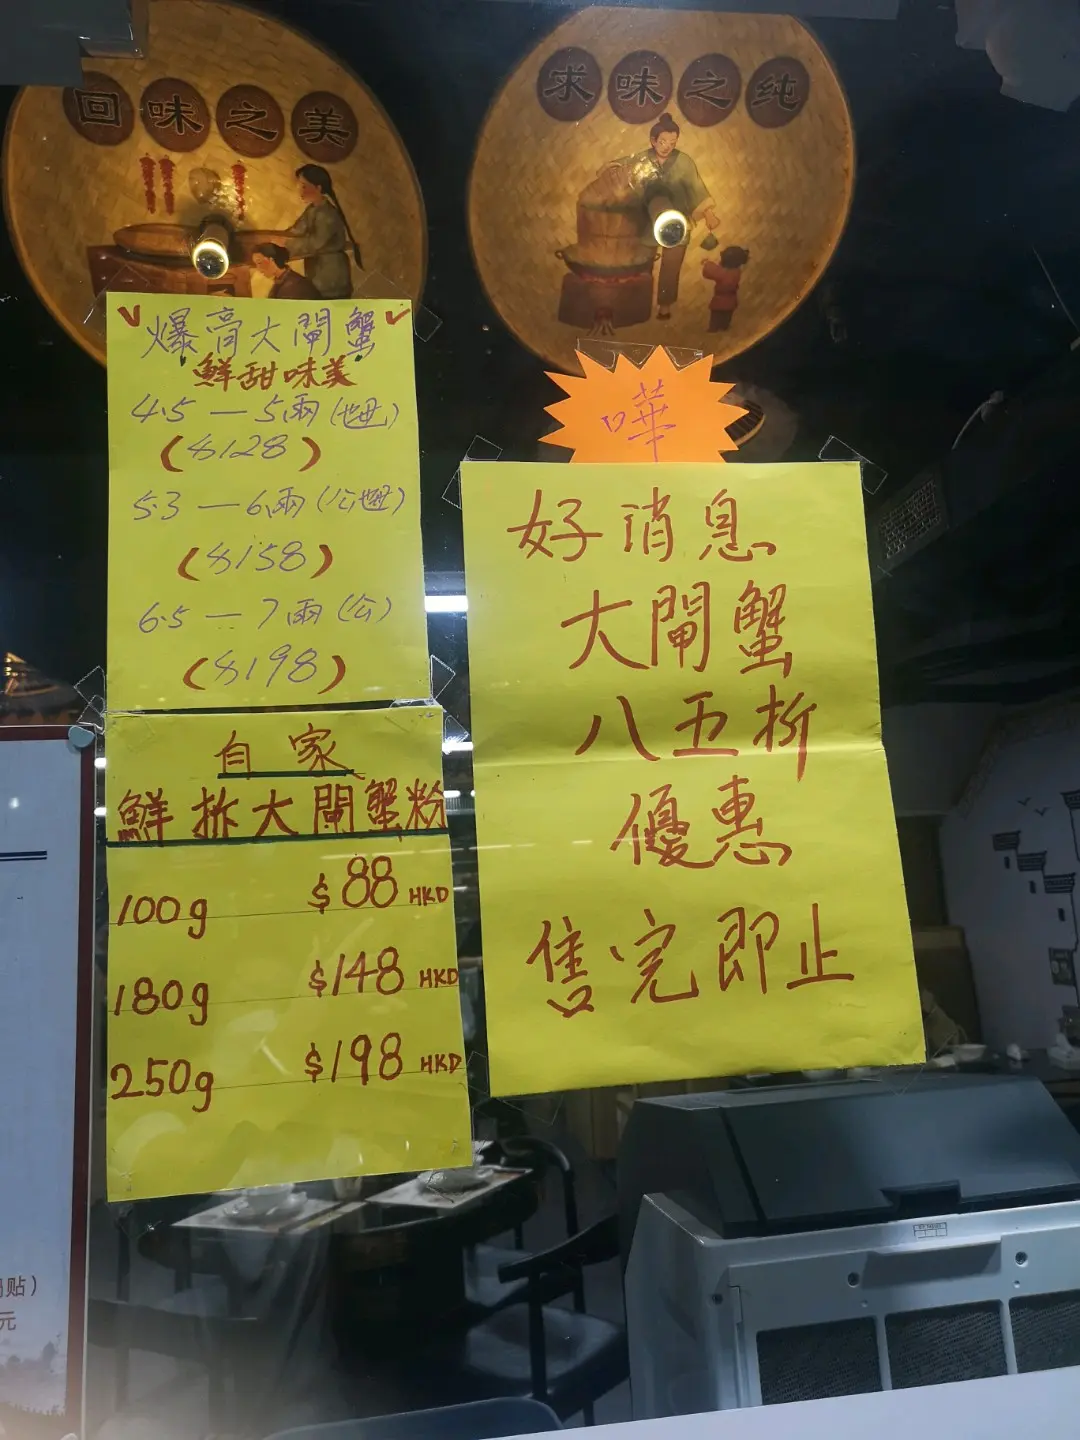 回味之美
求味之纯
爆膏大閘蟹
鮮甜味美
4.5 — 5兩(乸)
($128)
5.3 — 6兩(公乸)
($158)
6.5 — 7兩(公)
($198)
自家
鮮拆大閘蟹粉
100g $88 HKD
180g $148 HKD
250g $198 HKD
嘩
好消息
大閘蟹
八五折
優惠
售完即止
贴)
元